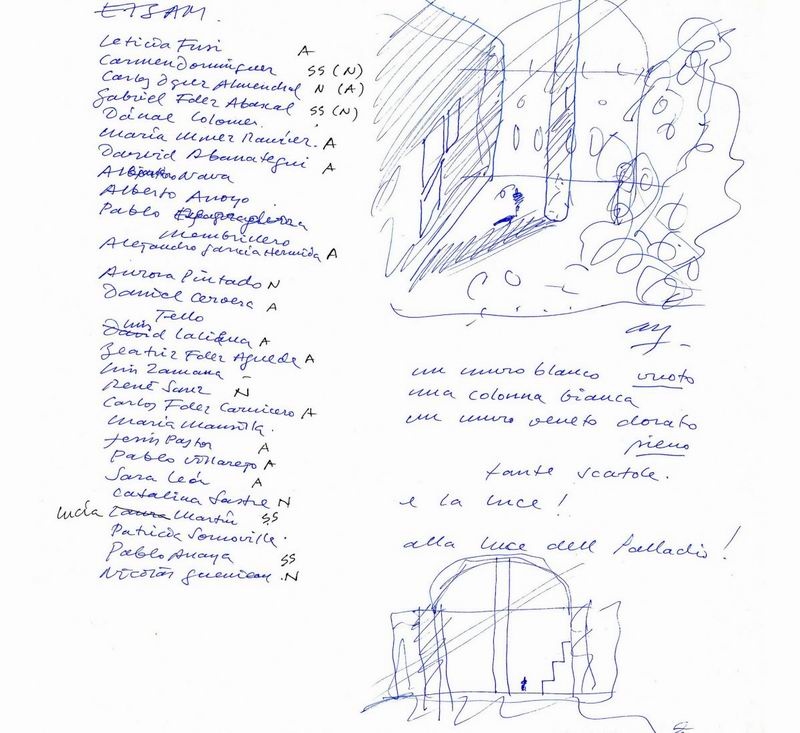 ETSAM.
Leticia Fusi A
Carmen Dominguer SS (N)
Carlos Oguer Almendral N (A)
Gabriel Fdez Abascal SS (N)
Danae Colomer.
Maria Ramirez. A
David Abanategui A
Nava
Alberto Arroyo
Pablo
Membrillero
Alejandro Garcia Hermida A
Aurora Pintado N
Daniel Cervera A
Tello
Luis
David A
Beatriz Fdez Agueda A
Luis Zamana -
René Sanz N
Carlos Fdez Carnicero A
Maria Mansilla.
Jesús Pastor A
Pablo Villarejo A
Sara León A
Catalina Sastre N
Lucía Laura Martín SS
Patricia Somoville.
Pablo Anaya SS
Nicolás .N
un muro blanco vuoto
una colonna bianca
un muro veneto dorato
pieno
tante scatole.
e la luce!
alla luce dell Palladio!